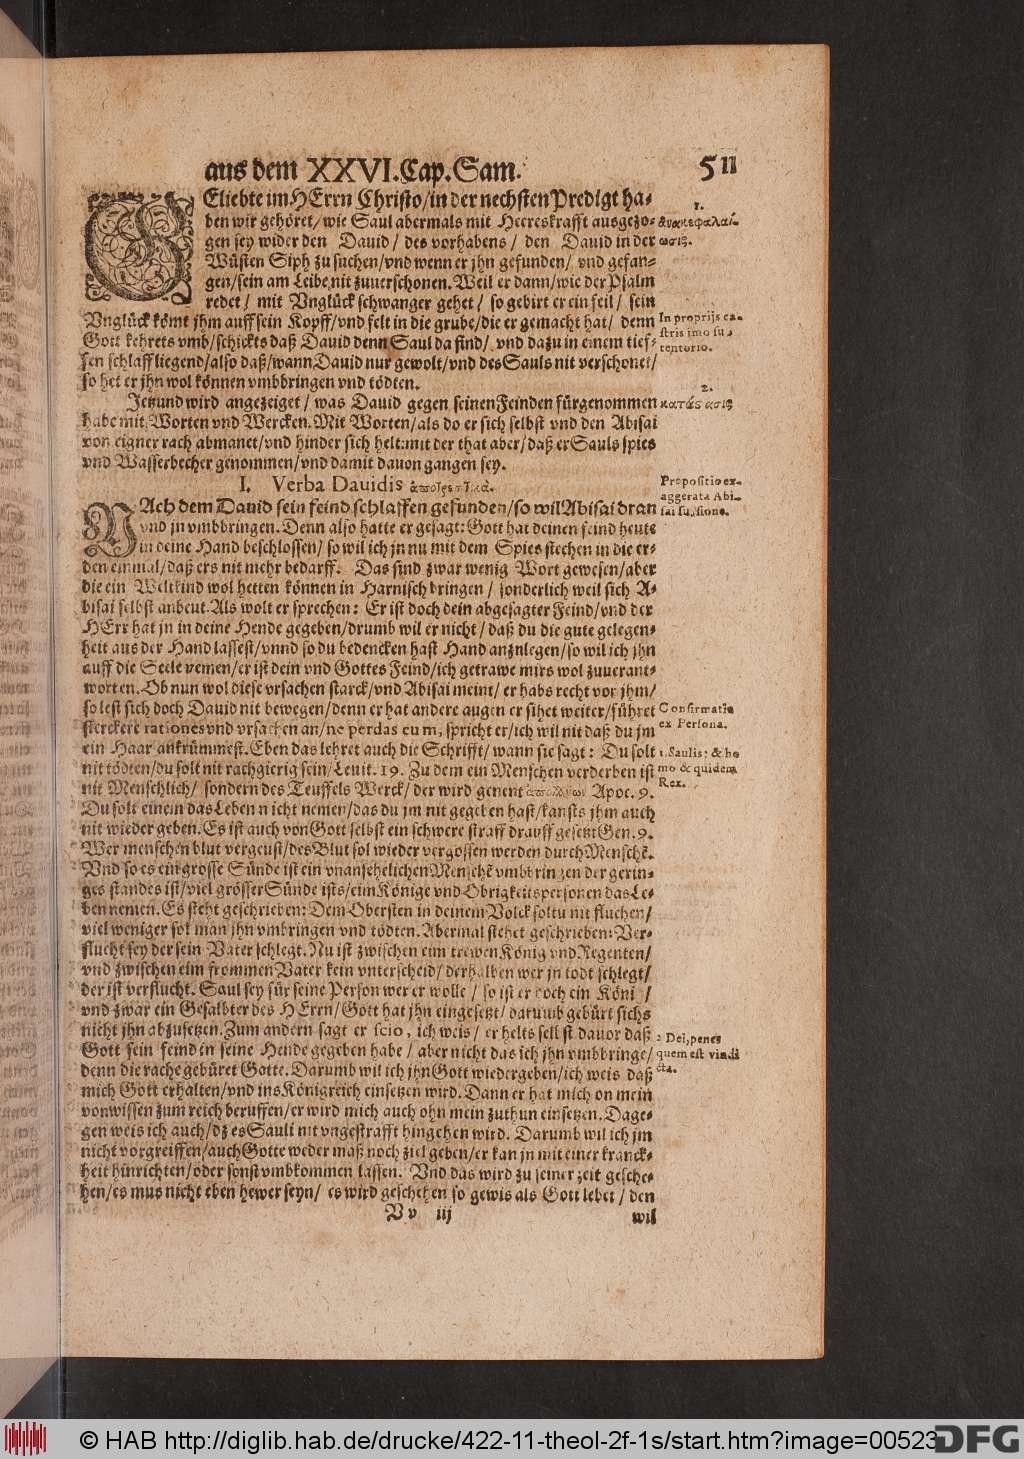 aus dem XXVI. Cap. Sam. 511
GEliebte im HErrn Christo/in der nechsten Predigt ha-
ben wir gehöret/wie Saul abermals mit Heereskrafft ausgezo-
gen sey wider den David/des vorhabens/den David in der
Wüsten Siph zu suchen/vnd wenn er jhn gefunden/vnd gefan-
gen/sein am Leibe nit zuuerschonen. Weil er dann/wie der Psalm
redet/mit Vnglück schwanger gehet/so gebirt er ein feil/sein
Vnglück kömt jhm auff sein Kopff/vnd felt in die grube/die er gemacht hat/denn
Gott kehrets vmb/schickts daß David denn Saul da find/vnd dazu in einem tief-
fen schlaff liegend/also daß/wann David nur gewolt/vnd des Sauls nit verschonet/
so het er jhn wol können vmbbringen vnd tödten.
Jetzund wird angezeiget/was David gegen seinen Feinden fürgenommen
habe mit Worten vnd Wercken. Mit Worten/als do er sich selbst vnd den Abisai
von eigner rach abmanet/vnd hinder sich helt: mit der that aber/daß er Sauls spies
vnd Wasserbecher genommen/vnd damit dauon gangen sey.
1.
ἀνακεφαλαί-
ωσις.
In proprijs ca-
stris imo su-
tentorio.
2.
I. Verba Dauidis
NAch dem David sein feind schlaffen gefunden/so wil Abisai dran
vnd jn vmbbringen. Denn also hatte er gesagt: Gott hat deinen feind heute
in deine Hand beschlossen/so wil ich jn nu mit dem Spies stechen in die er-
den einmal/daß ers nit mehr bedarff. Das sind zwar wenig Wort gewesen/aber
die ein Weltkind wol hetten können in Harnisch bringen/sonderlich weil sich A-
bisai selbst anbeut. Als wolt er sprechen: Er ist doch dein abgesagter Feind/vnd der
HErr hat jn in deine Hende gegeben/drumb wil er nicht/daß du die gute gelegen-
heit aus der Hand lassest/vnnd so du bedencken hast Hand anznlegen/so wil ich jhn
auff die Seele nemen/er ist dein vnd Gottes Feind/ich getrawe mirs wol zuuerant-
worten. Ob nun wol diese vrsachen starck/vnd Abisai meint/er habs recht vor jhm/
so lest sich doch David nit bewegen/denn er hat andere augen er sihet weiter/führet
sterckere rationes vnd vrsachen an/ne perdas eum, spricht er/ich wil nit daß du jm
ein Haar ankrümmest. Eben das lehret auch die Schrifft/wann sie sagt: Du solt
nit tödten/du solt nit rachgierig sein/Leuit. 19. Zu dem ein Menschen verderben ist
nit Menschlich/sondern des Teuffels Werck/der wird genent Apoc. 9.
Du solt einem das Leben nicht nemen/das du jm nit gegeben hast/kansts jhm auch
nit wieder geben. Es ist auch von Gott selbst ein schwere straff drauff gesetzt Gen. 9.
Wer menschen blut vergeust/des Blut sol wieder vergossen werden durch Mensche͂.
Vnd so es ein grosse Sünde ist ein vnansehelichen Mensche͂ vmbbringen der gerin-
ges standes ist/viel grösser Sünde ists/eim Könige vnd Obrigkeitspersonen das Le-
ben nemen. Es steht geschrieben: Dem Obersten in deinem Volck soltu nit fluchen/
viel weniger sol man jhn vmbringen vnd tödten. Abermal stehet geschrieben: Ver-
flucht sey der sein Vater schlegt. Nu ist zwischen eim trewen König vnd Regenten/
vnd zwischen eim frommen Vater kein vnterscheid/derhalben wer jn todt schlegt/
der ist verflucht. Saul sey für seine Person wer er wolle/so ist er doch ein Köni /
vnd zwar ein Gesalbter des HErrn/Gott hat jhn eingesetzt/darumb gebürt sichs
nicht jhn abzusetzen. Zum andern sagt er scio, ich weis/er helts selbst dauor daß
Gott sein feind in seine Hende gegeben habe/aber nicht das ich jhn vmbbringe/
denn die rache gebüret Gotte. Darumb wil ich jhn Gott wiedergeben/ich weis daß
mich Gott erhalten/vnd ins Königreich einsetzen wird. Dann er hat mich on mein
vorwissen zum reich beruffen/er wird mich auch ohn mein zuthun einsetzen. Dage-
gen weis ich auch/dz es Sauli nit vngestrafft hingehen wird. Darumb wil ich jm
nicht vorgreiffen/auch Gotte weder maß noch ziel geben/er kan jn mit einer kranck-
heit hinrichten/oder sonst vmbkommen lassen. Vnd das wird zu seiner zeit gesche-
hen/es mus nicht eben hewer seyn/es wird geschehen so gewis als Gott lebet/den
Propositio ex-
aggerata Abi-
sai suasione.
Confirmatio
ex Persona.
1. Saulis: & ho
mo & quidem
Rex.
2 Dei, penes
quem est vindi
cta.
Vv iij wil
© HAB http://diglib.hab.de/drucke/422-11-theol-2f-1s/start.htm?image=00523
DFG